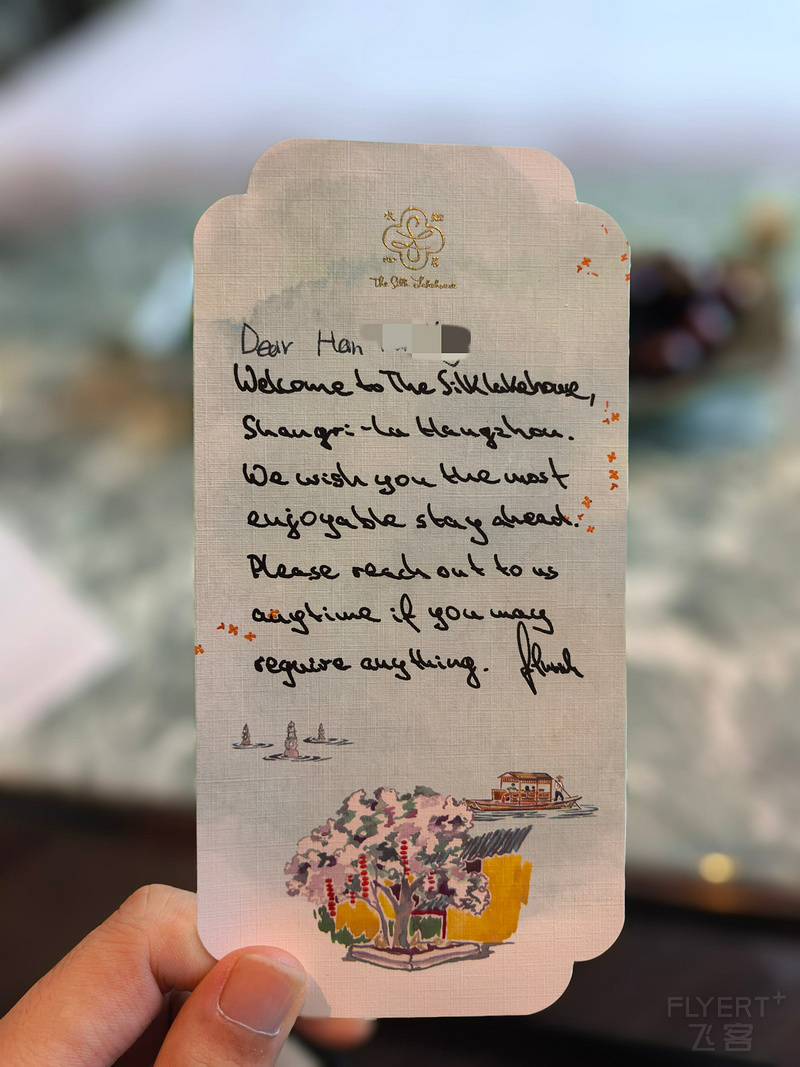 The Silk Lakehouse
Dear Han
Welcome to The Silklakehouse,
Shangri-La Hangzhou.
We wish you the most
enjoyable stay ahead.
Please reach out to us
anytime if you may
require anything.
FLYERT+
飞客